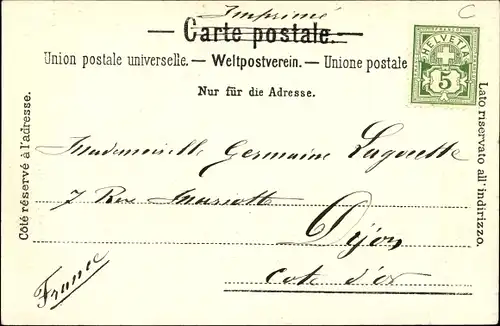 Imprimé
— Carte postale. —
Union postale universelle. — Weltpostverein. — Unione postale
Nur für die Adresse.
HELVETIA
5
C
Côté réservé à l'adresse.
Lato riservato all'indirizzo.
Mademoiselle Germaine
7 Rue Mariotte
Dijon
Cote d'or
France